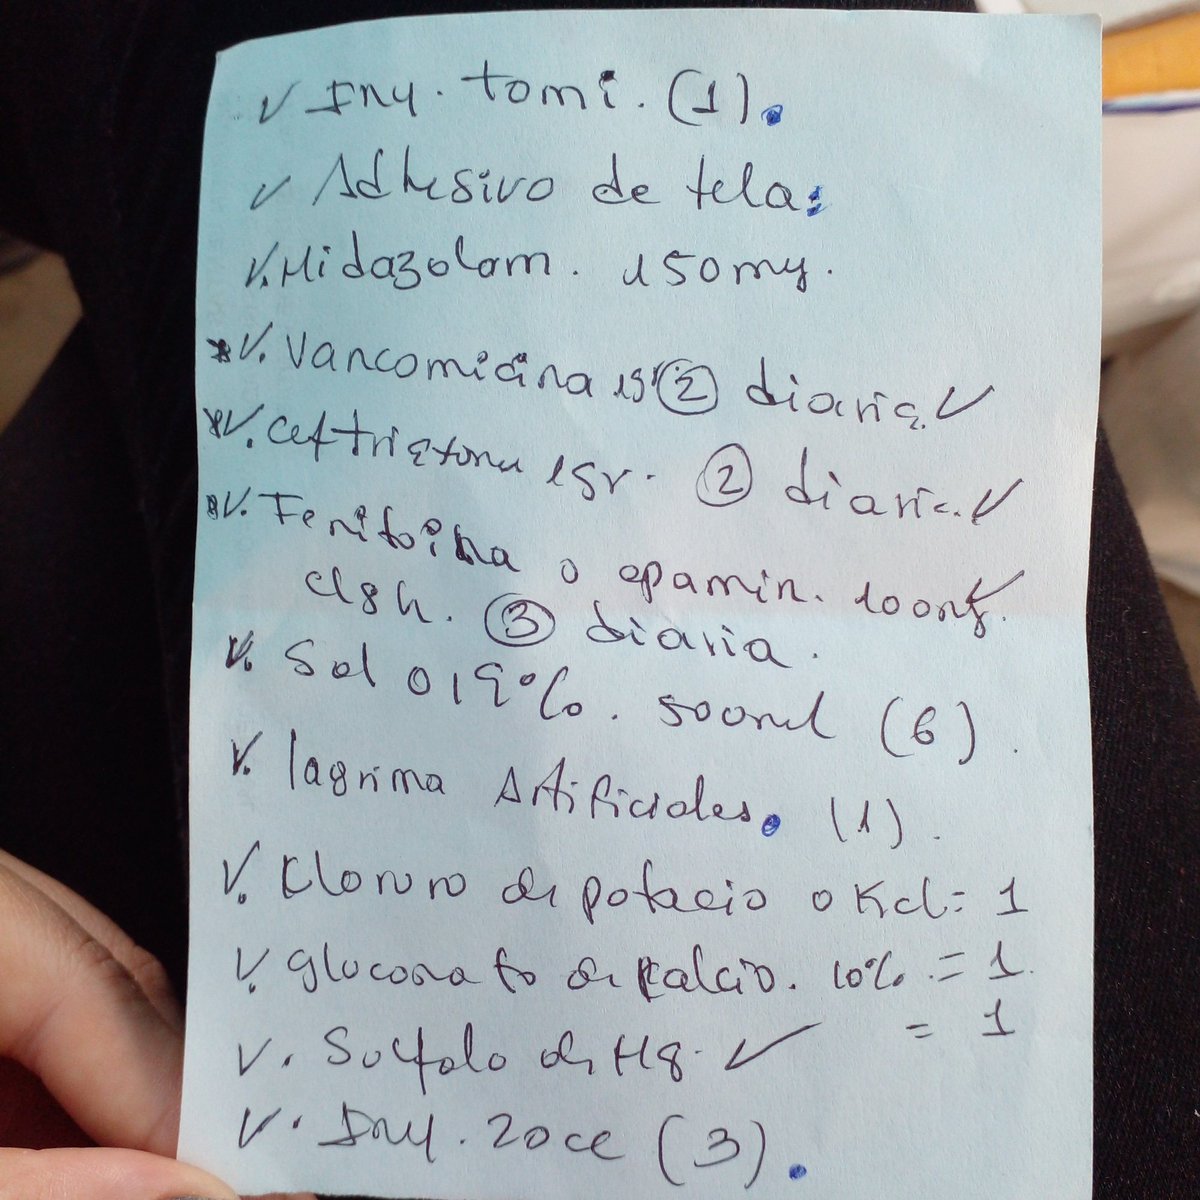 ✓ Iny. tomi. (1).
✓ Adhesivo de tela:
✓. Midazolam. 150mg.
*✓. Vancomicina 1gr ② diaria. ✓
*✓. Ceftriaxona 1gr. ② diaria. ✓
*✓. Fenitoina o epamin. 100mg. ✓
c/8h. ③ diaria.
✓. Sol 0,9%. 500ml (6).
✓. lagrima Artificiales. (1).
✓. Cloruro de potacio o Kcl = 1
✓. gluconato de calcio. 10%. = 1.
✓. Sulfato de Mg. ✓ = 1
✓. Iny. 20cc (3).